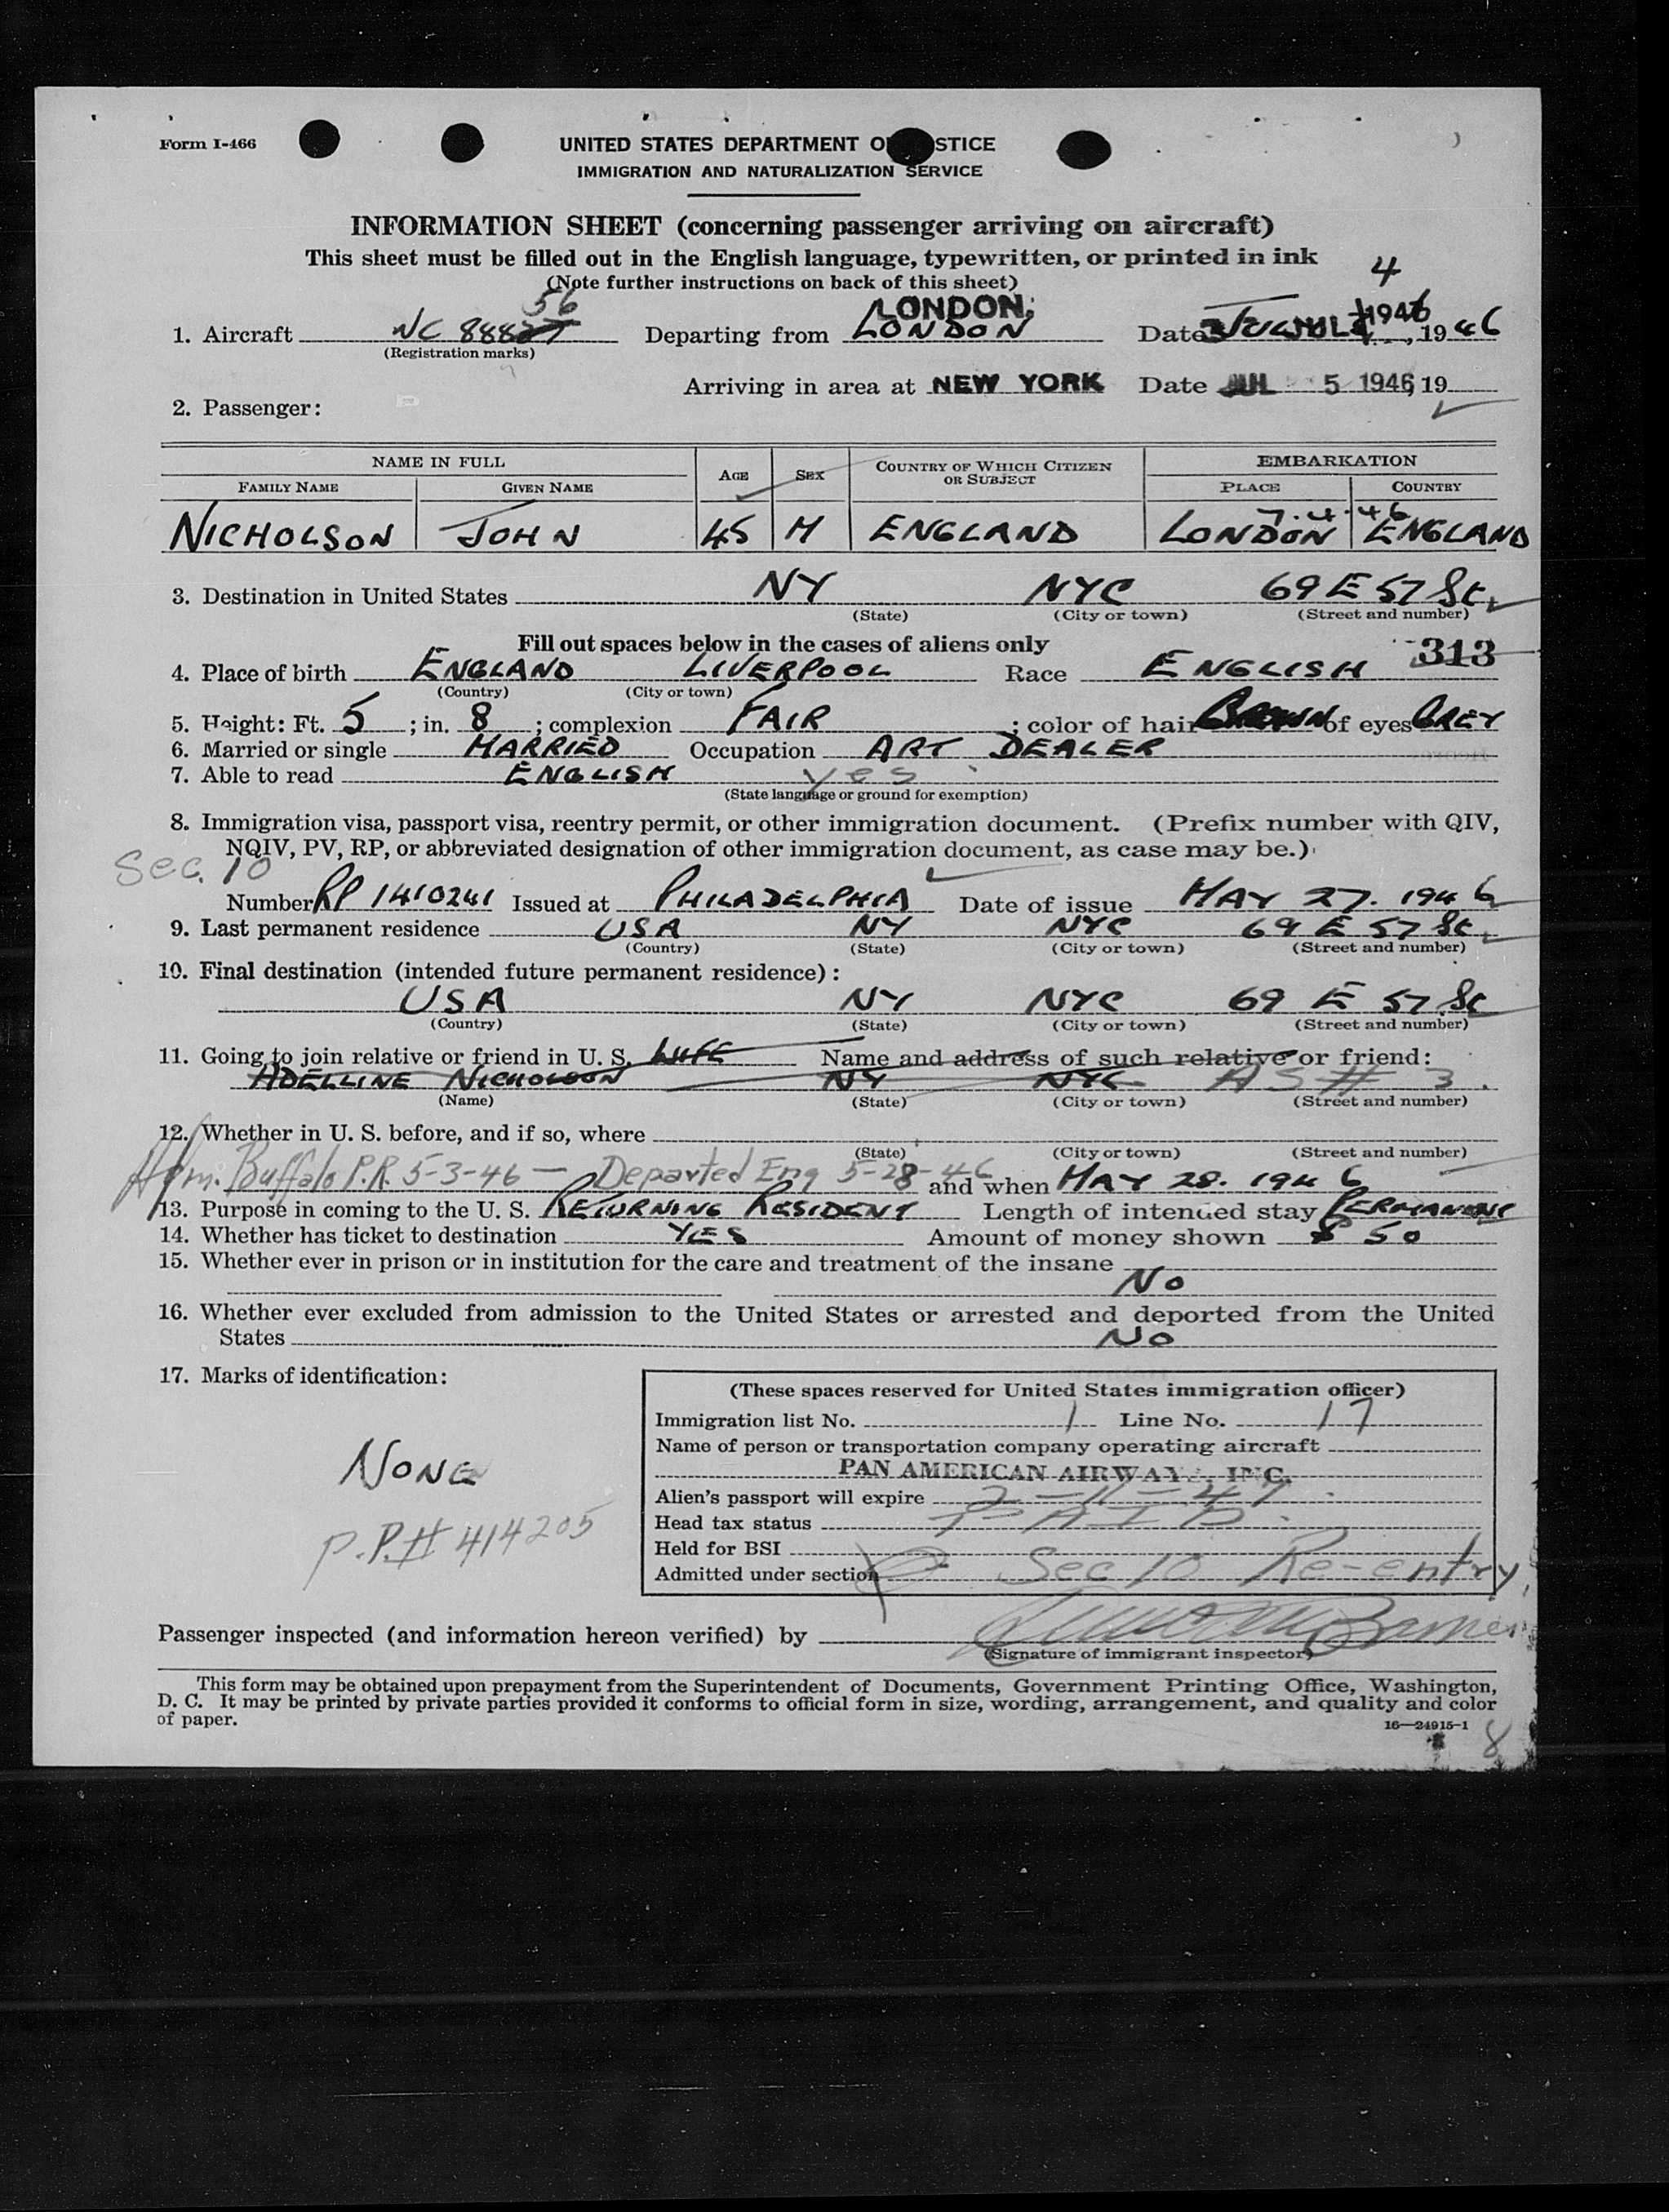 Form I-466
UNITED STATES DEPARTMENT O STICE
IMMIGRATION AND NATURALIZATION SERVICE
INFORMATION SHEET (concerning passenger arriving on aircraft)
This sheet must be filled out in the English language, typewritten, or printed in ink
(Note further instructions on back of this sheet)
4
56 LONDON.
1. Aircraft NC 88827 Departing from LONDON Date JULY 1946, 1946
(Registration marks)
Arriving in area at NEW YORK Date JUL 5 1946, 19
2. Passenger:
NAME IN FULL AGE SEX COUNTRY OF WHICH CITIZEN OR SUBJECT EMBARKATION
FAMILY NAME GIVEN NAME PLACE COUNTRY
7.4.46
NICHOLSON JOHN 45 M ENGLAND LONDON ENGLAND
3. Destination in United States NY NYC 69 E 57 St.
(State) (City or town) (Street and number)
Fill out spaces below in the cases of aliens only
313
4. Place of birth ENGLAND LIVERPOOL Race ENGLISH
(Country) (City or town)
5. Height: Ft. 5; in. 8; complexion FAIR; color of hair BROWN of eyes GREY
6. Married or single MARRIED Occupation ART DEALER
7. Able to read ENGLISH yes
(State language or ground for exemption)
8. Immigration visa, passport visa, reentry permit, or other immigration document. (Prefix number with QIV,
NQIV, PV, RP, or abbreviated designation of other immigration document, as case may be.)
Sec. 10
Number RP 1410241 Issued at PHILADELPHIA Date of issue MAY 27. 1946
9. Last permanent residence USA NY NYC 69 E 57 St.
(Country) (State) (City or town) (Street and number)
10. Final destination (intended future permanent residence):
USA NY NYC 69 E 57 St
(Country) (State) (City or town) (Street and number)
11. Going to join relative or friend in U. S. WIFE Name and address of such relative or friend:
ADELLINE NICHOLSON NY NYC AS # 3
(Name) (State) (City or town) (Street and number)
12. Whether in U. S. before, and if so, where
(State) (City or town) (Street and number)
Adm. Buffalo P.R. 5-3-46 — Departed Eng 5-28-46 and when MAY 28. 1946
13. Purpose in coming to the U. S. RETURNING RESIDENT Length of intended stay PERMANENT
14. Whether has ticket to destination YES Amount of money shown $ 50
15. Whether ever in prison or in institution for the care and treatment of the insane
NO
16. Whether ever excluded from admission to the United States or arrested and deported from the United
States NO
17. Marks of identification:
NONE
P.P.# 414205
(These spaces reserved for United States immigration officer)
Immigration list No. 1 Line No. 17
Name of person or transportation company operating aircraft
PAN AMERICAN AIRWAYS, INC.
Alien's passport will expire 2-11-47
Head tax status PAID.
Held for BSI
Admitted under section Sec 10 Re-entry
Passenger inspected (and information hereon verified) by
(Signature of immigrant inspector)
This form may be obtained upon prepayment from the Superintendent of Documents, Government Printing Office, Washington,
D. C. It may be printed by private parties provided it conforms to official form in size, wording, arrangement, and quality and color
of paper.
16—24915-1
8